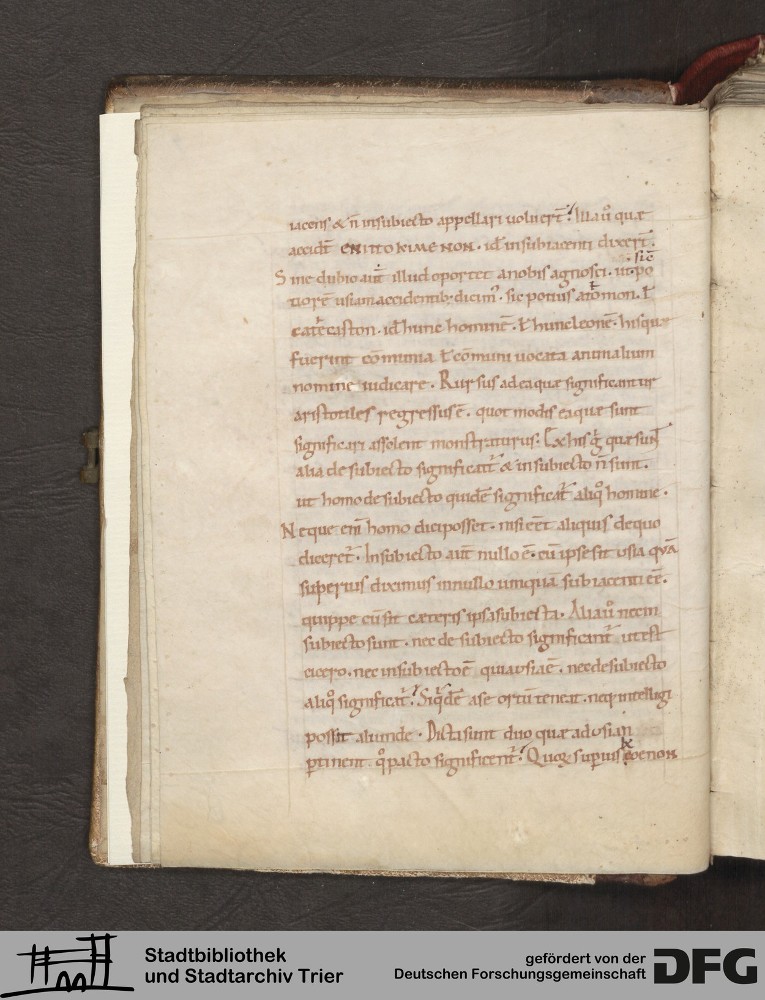 iacens & n̄ insubiecto appellari uoluer̄t. Illa ū quæ
accidt̄ ENITTOKIMENON. id̄ insubiacenti dixer̄t.
Sine dubio aūt illud oportet anobis agnosci. ut po
tiorē usiam accidentib; dicim̉. sic potius atomon. ł
id̄ hunc hominē. ł hunc leonē. hisquæ
fuerint cōmunia ł cōmuni uocata animalium
nomine iudicare. Rursus ad ea quæ significantur
aristotiles regressus ē. quot modis ea quæ sunt
significari assolent monstraturus. Ex his g̊ quæ sunt
alia de subiecto significant̄ & in subiecto n̄ sunt.
ut homo de subiecto quidē significat̄ aliq̊ homine.
Neque enī homo dici posset. nisi eēt aliquis de quo
diceret̄. Insubiecto aūt nullo ē. cū ipse sit usia quā
superius diximus innullo umquā subiacenti eē.
quippe cū sit cæteris ipsa subiecta. Alia ū nec in
subiecto sunt. nec de subiecto significant̄ ut est
cicero. nec insubiecto ē quia usia ē. nec de subiecto
aliq̊ significat̄. Siqdē a se ortū teneat. neq; intelligi
possit aliunde. Dicta sunt duo quæ ad usian
ptinent q̊ pacto significent̄. Quoq; superius
Stadtbibliothek
und Stadtarchiv Trier
gefördert von der
Deutschen Forschungsgemeinschaft
DFG